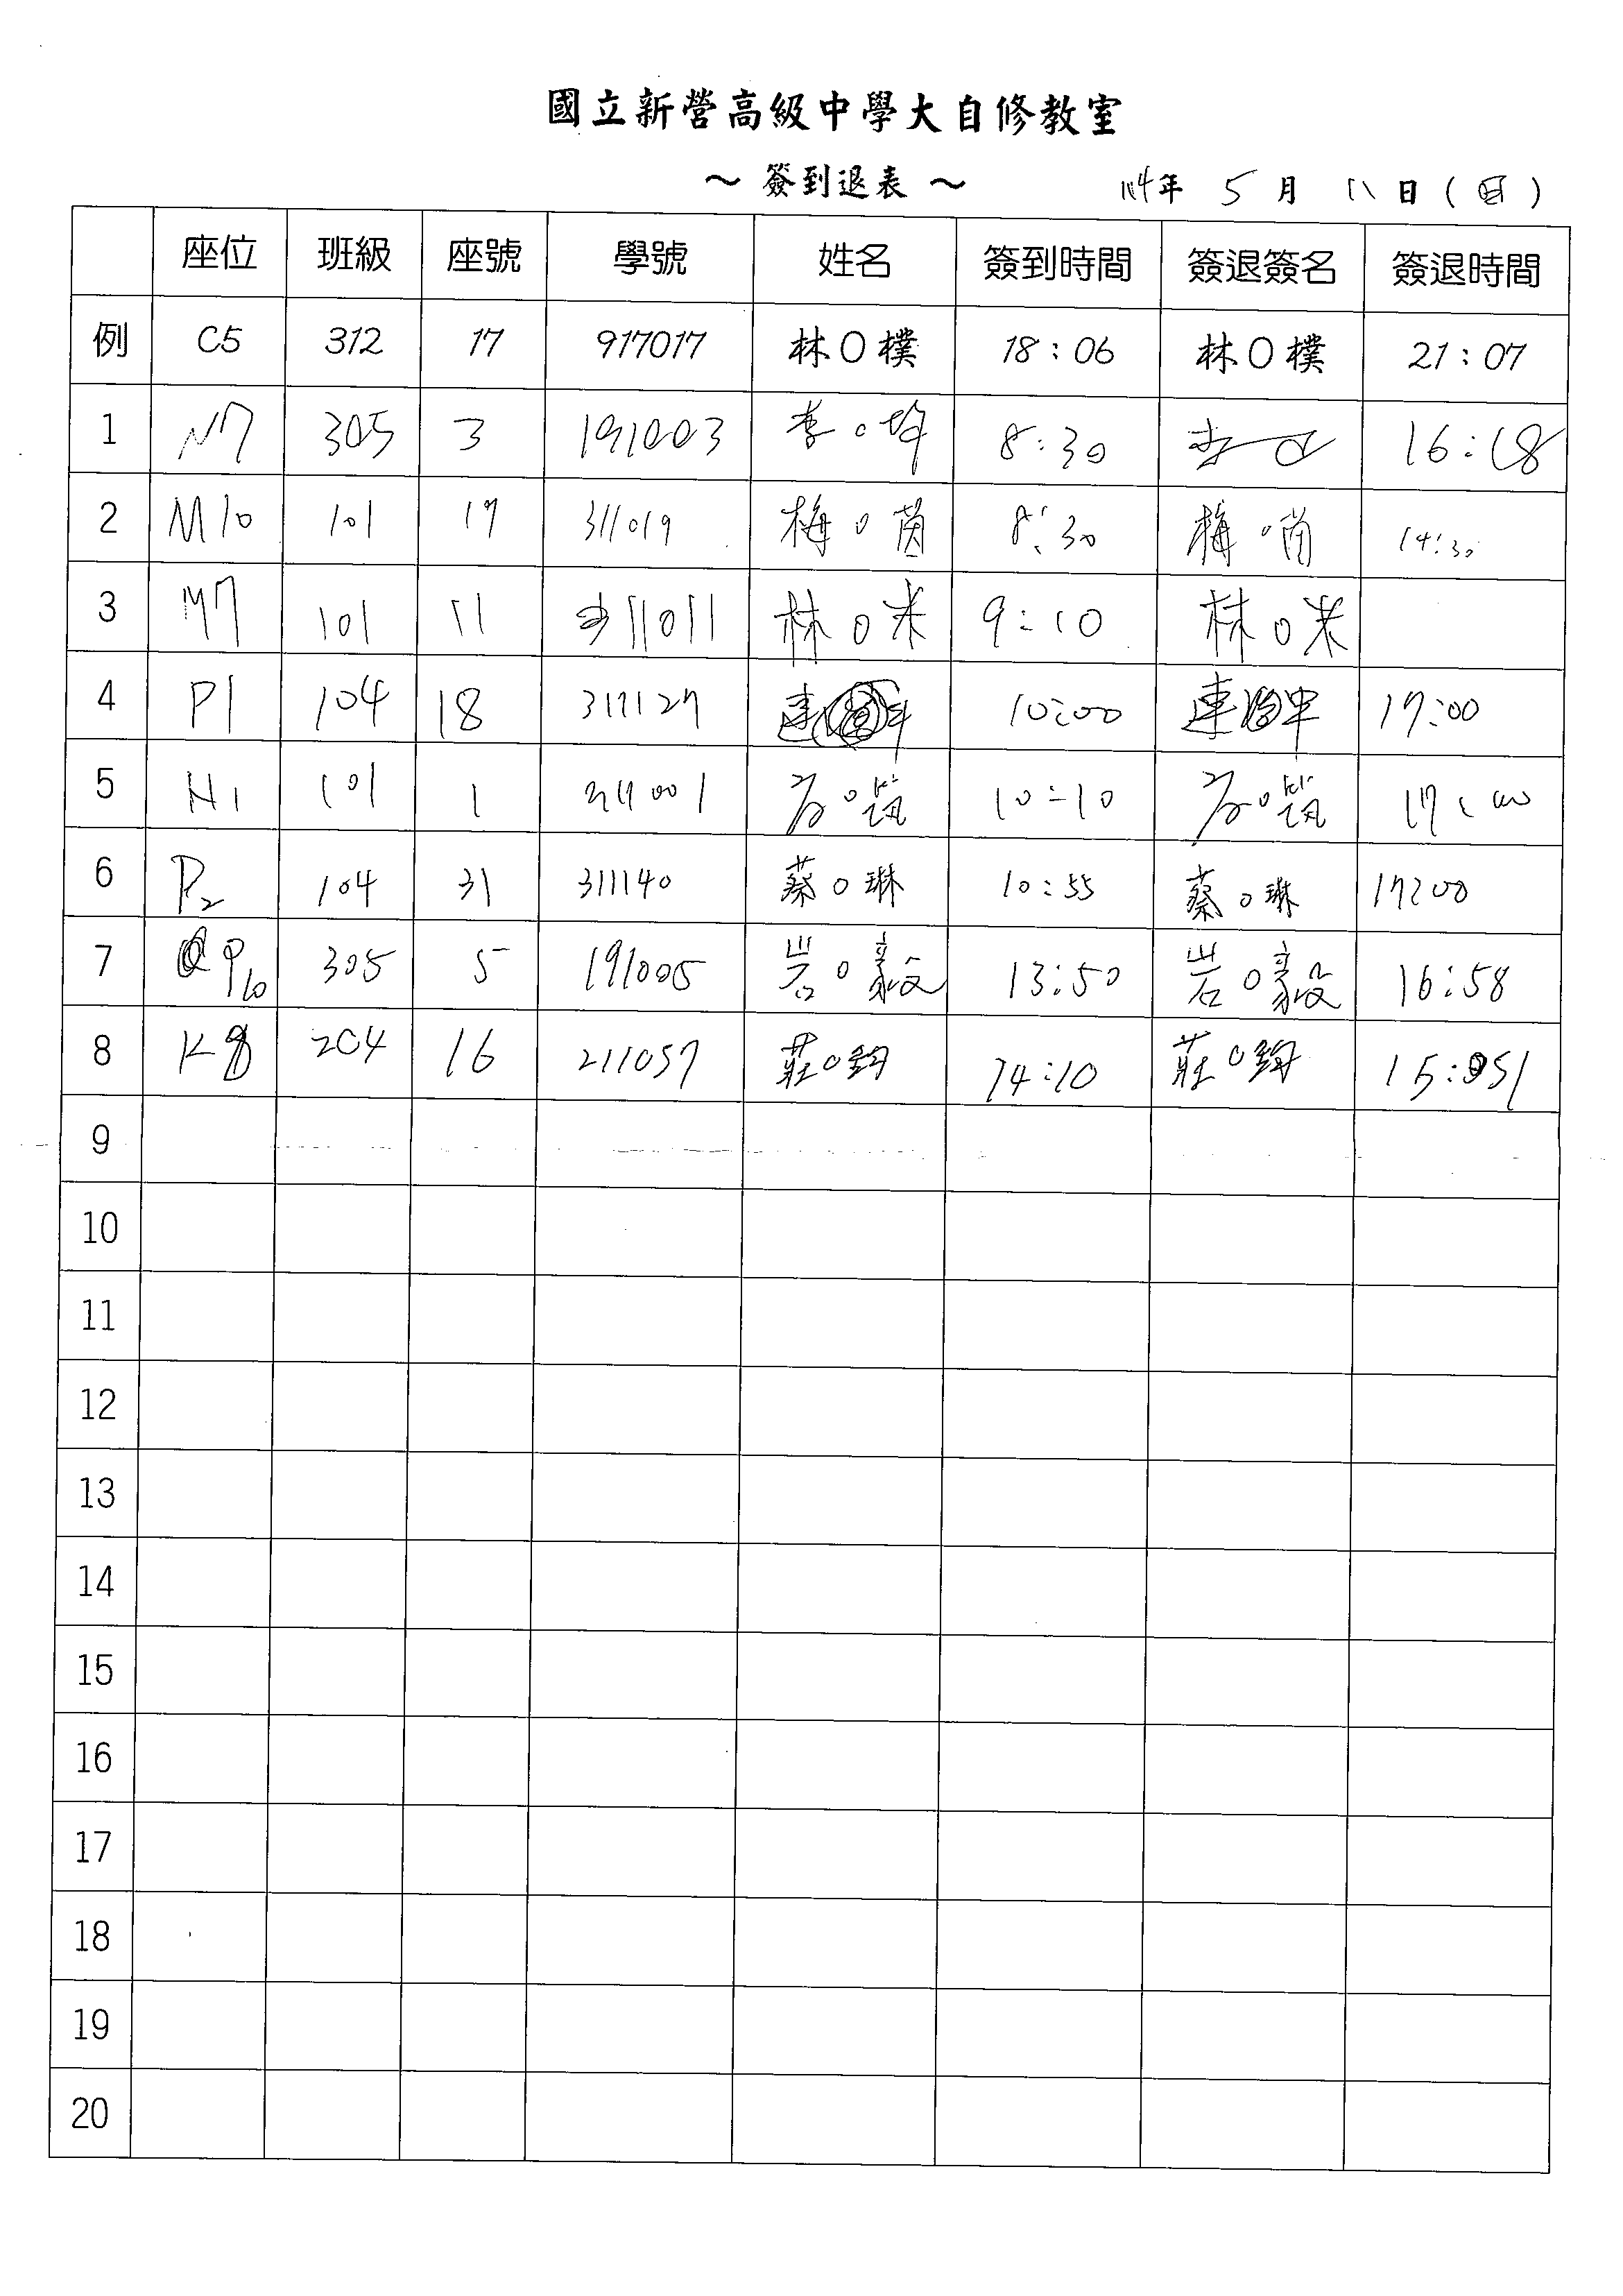 國立新營高級中學大自修教室
～ 簽到退表 ～ 114年 5 月 11 日 ( 日 )
座位 班級 座號 學號 姓名 簽到時間 簽退簽名 簽退時間
例 C5 312 17 917017 林O樸 18:06 林O樸 21:07
1 N7 305 3 191003 李O 8:30 李 16:18
2 M10 101 19 311019 梅O茵 8:30 梅O茵 14:30
3 M7 101 11 311011 林O米 9:10 林O米
4 P1 104 18 311127 連 10:00 連 17:00
5 N1 101 1 311001 10:10 17:00
6 P2 104 31 311140 蔡O琳 10:55 蔡O琳 17:00
7 P10 305 5 191005 岩O毅 13:50 岩O毅 16:58
8 K8 204 16 211057 莊O鈞 14:10 莊O鈞 15:51
9
10
11
12
13
14
15
16
17
18
19
20